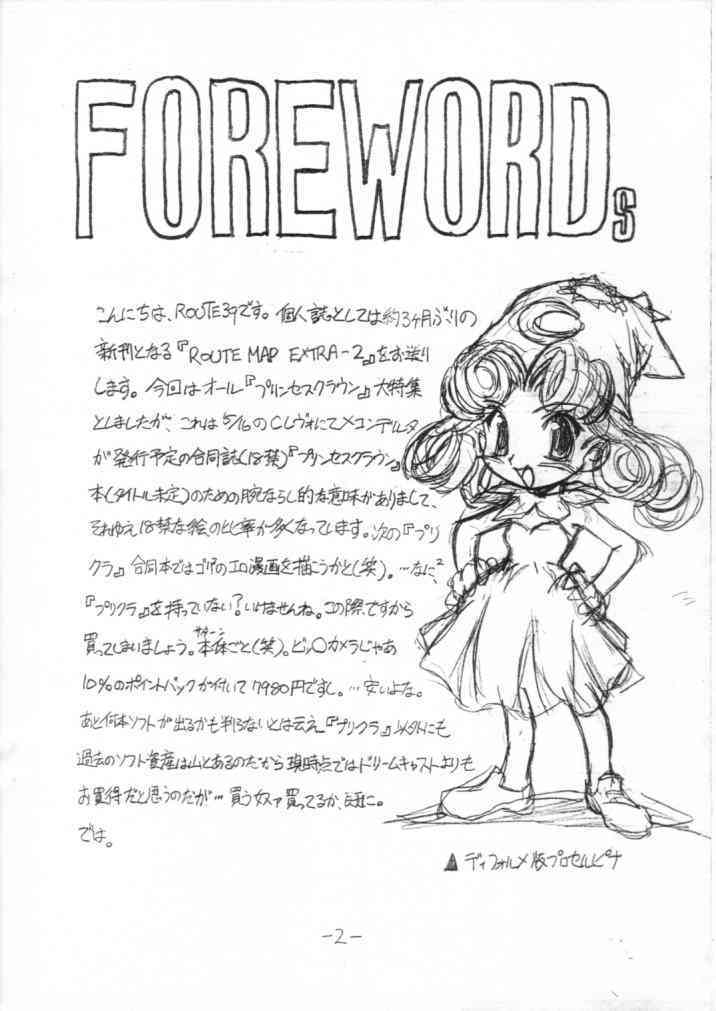 FOREWORDs
こんにちは、ROUTE39です。個人誌としては約3ヶ月ぶりの
新刊となる『ROUTE MAP EXTRA-2』をお送り
します。今回はオール『プリンセスクラウン』大特集
としましたが、これは5/16のCレヴォにてメコンデルタ
が発行予定の合同誌(18禁)『プリンセスクラウン』
本(タイトル未定)のための腕ならし的な意味がありまして、
それゆえ18禁な絵のヒ率が多くなっています。次の『プリ
クラ』合同本ではゴリゴリのエロ漫画を描こうかと(笑)。…なに?、
『プリクラ』を持っていない?いけませんね。この際ですから
買ってしまいましょう。本体ごと(笑)。ビッ〇カメラじゃあ
サターン
10%のポイントバックが付いて7980円ですし。…安いよな。
あと何本ソフトが出るかも判らないとは云え、『プリクラ』以外にも
過去のソフト資産は山とあるのだから現時点ではドリームキャストよりも
お買得だと思うのだが…買う奴ァ買ってるか、既に。
では。
▲ディフォルメ版プロセルピナ
-2-